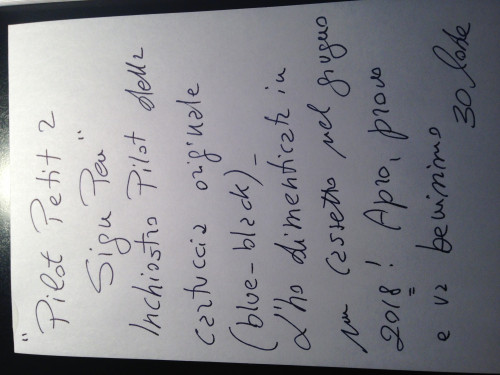 "Pilot Petit 2
Sign Pen"
Inchiostro Pilot della
cartuccia originale
(blue-black)-
L'ho dimenticata in
un cassetto nel giugno
2018! Apro, provo
e va benissimo
30 lode